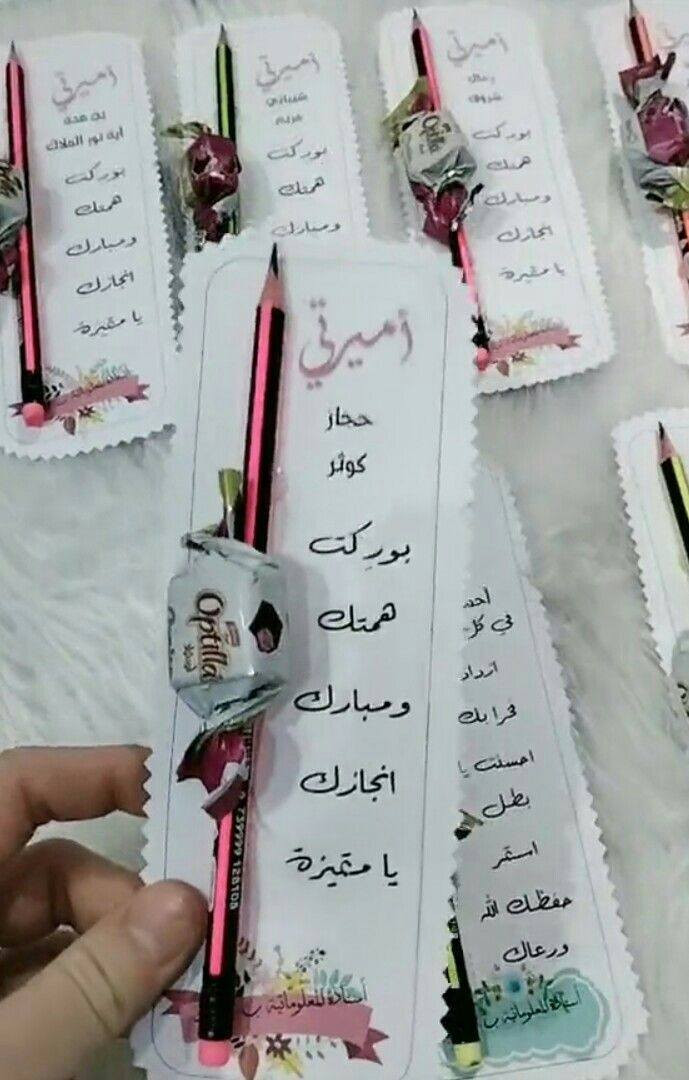 أميرتي
حجار
كوثر
بوركت
همتك
ومبارك
انجازك
يا متميزة
أستاذة المعلوماتية ب
Optilla
739999 128108
أميرتي
آية نور الملاك
بوركت
همتك
ومبارك
انجازك
يا متميزة
أميرتي
مريم
بوركت
همتك
ومبارك
أميرتي
شروق
بوركت
همتك
ومبارك
انجازك
يا متميزة
Optilla
في كل
أزداد
فخرا بك
احسنت يا
بطل
استمر
حفظك الله
ورعاك
أستاذة المعلوماتية ب